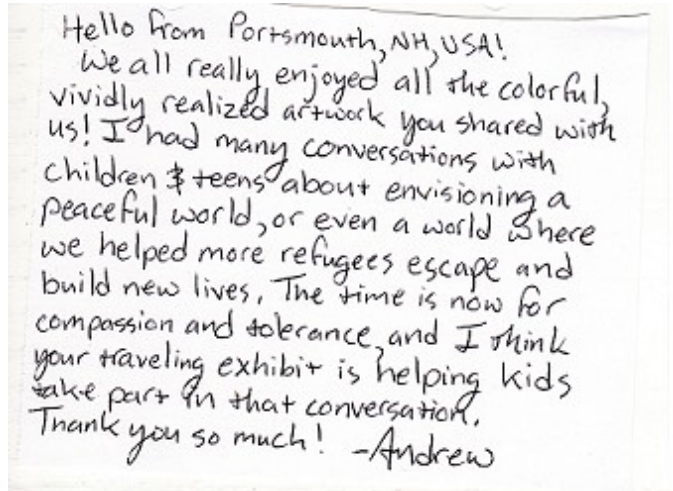 Hello from Portsmouth, NH, USA!
We all really enjoyed all the colorful,
vividly realized artwork you shared with
us! I had many conversations with
children & teens about envisioning a
peaceful world, or even a world where
we helped more refugees escape and
build new lives. The time is now for
compassion and tolerance, and I think
your traveling exhibit is helping kids
take part in that conversation.
Thank you so much! -Andrew